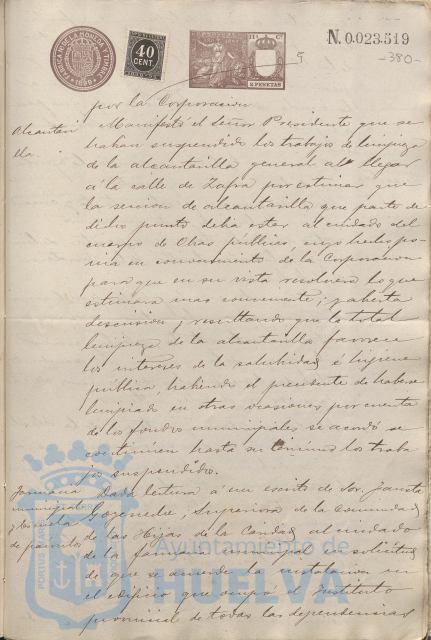 FABRICA DE LA MONEDA Y TIMBRE
1898
40
CENT.
11ª Cª
2 PESETAS
N. 0.023.519
5
-380-
por la Corporacion
Alcantari
lla.
Manifestó el señor Presidente que se
habian suspendido los trabajos de limpieza
de la alcantarilla general al llegar
á la calle de Zafra por estimar que
la seccion de alcantarilla que parte de
dicho punto debia estar al cuidado del
cuerpo de Obras públicas, cuyo hecho po-
nia en conocimiento de la Corporacion
para que en su vista resolviera lo que
estimara mas conveniente; y abierta
discusion, resultando que la total
limpieza de la alcantarilla favorece
los intereses de la salubridad é higiene
pública, habiendo el presente de haberse
limpiado en otras ocasiones por cuenta
de los fondos municipales se acordó se
continúen hasta su término los traba
jos suspendidos.
Farmacia
municipal
y Escuela
de párvulos
Dada lectura á un escrito de Sor
Superiora de la Comunidad
de las Hijas de la Caridad al cuidado
de la farmacia municipal en solicitud
de que se acuerde la instalacion en
el edificio que ocupa el Instituto
provincial de todas las dependencias
Ayuntamiento de
HUELVA